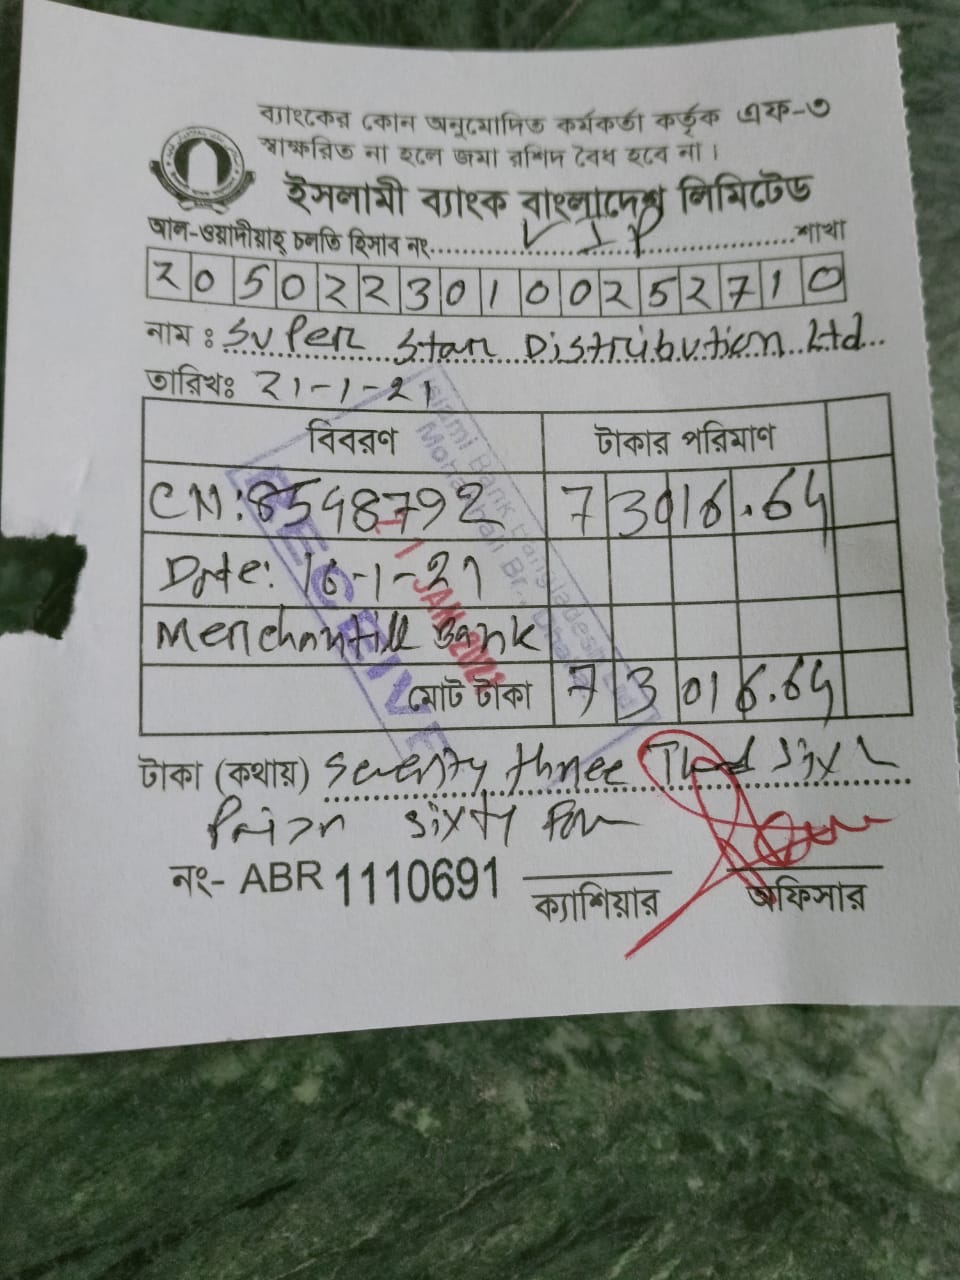 ব্যাংকের কোন অনুমোদিত কর্মকর্তা কর্তৃক এফ-৩
স্বাক্ষরিত না হলে জমা রশিদ বৈধ হবে না।
ইসলামী ব্যাংক বাংলাদেশ লিমিটেড
আল-ওয়াদীয়াহ্ চলতি হিসাব নং. VIP শাখা
20502230100252710
নাম : Super Star Distribution Ltd
তারিখঃ 21-1-21
বিবরণ টাকার পরিমাণ
CN: 8548792 73016.64
Date: 16-1-21
Merchantile Bank
মোট টাকা 73016.64
Islami Bank Bangladesh Ltd
Mohakhali Br., Dhaka
21 JAN 2021
RECEIVE
টাকা (কথায়) Seventy three Thd Six
Paisa sixty Four
নং- ABR 1110691
ক্যাশিয়ার অফিসার